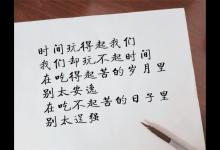 时间玩得起我们
我们却玩不起时间
在吃得起苦的岁月里
别太安逸
在吃不起苦的日子里
别太逞强